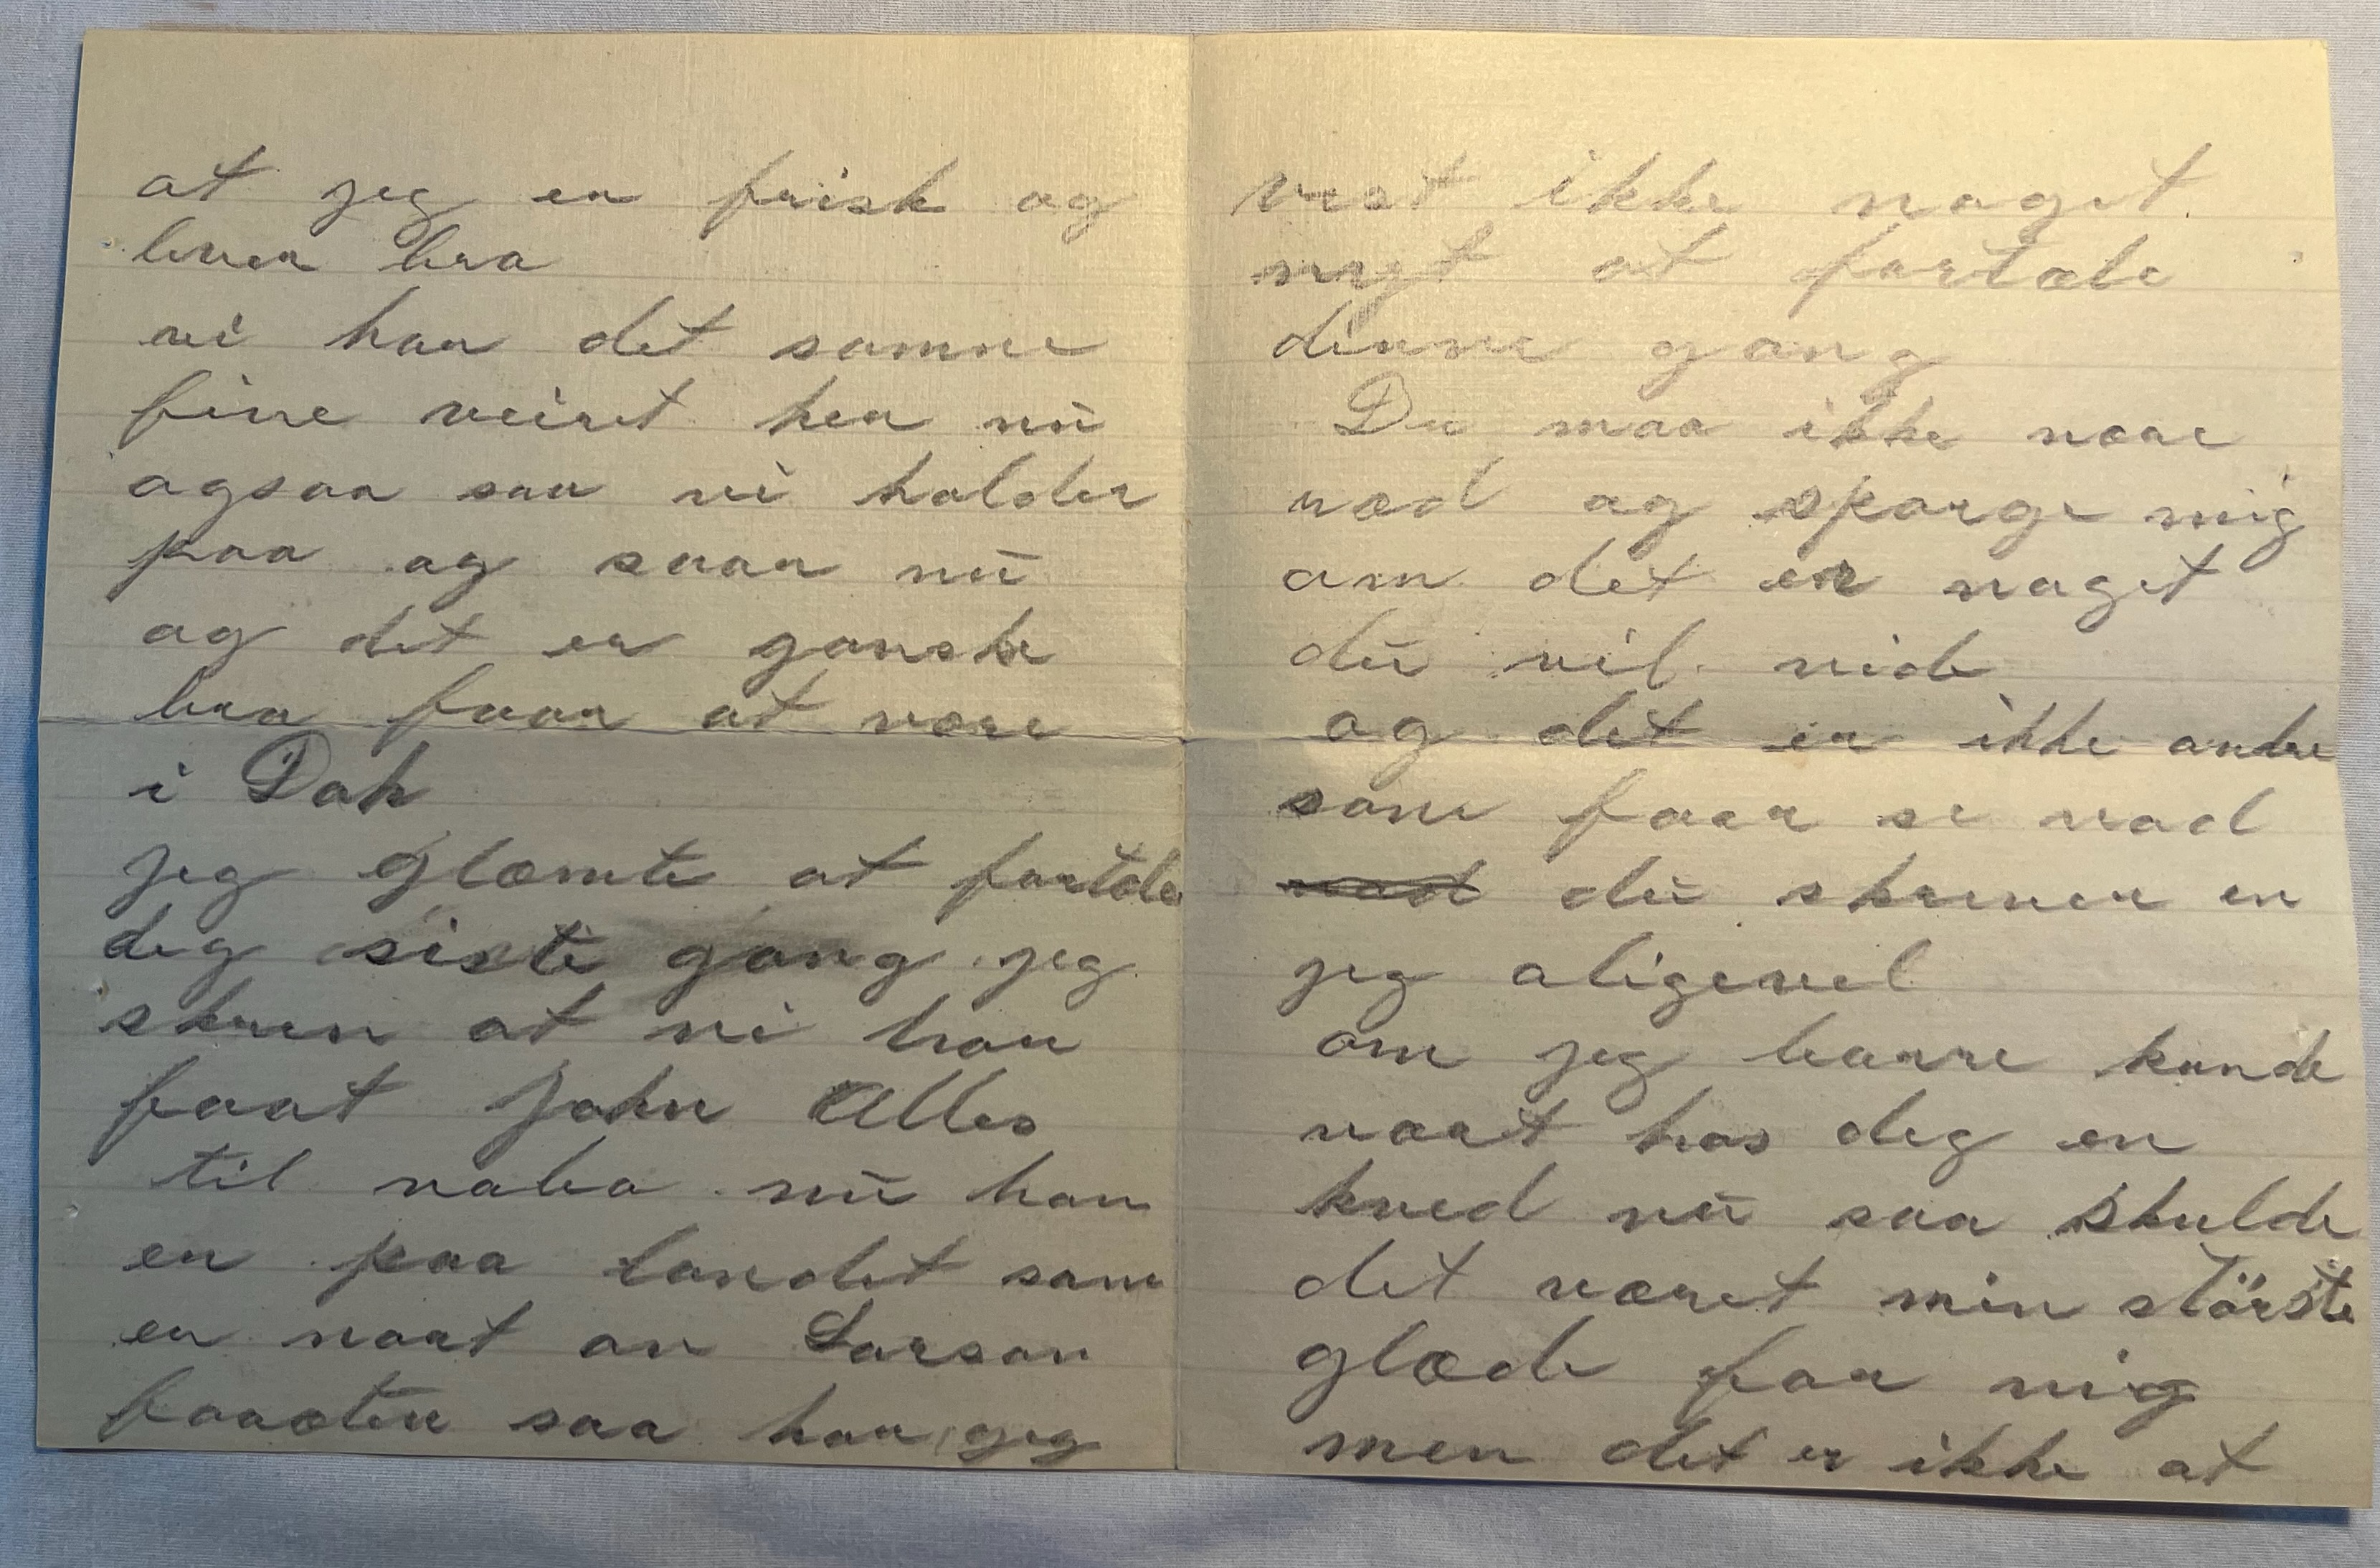 at jeg er frisk og
lever bra
vi har det samme
fine veiret her nu
ogsaa saa vi holder
paa og saar nu
og det er ganske
bra faar at være
i Dak
jeg glæmte at fortæle
deg siste gang jeg
skrev at vi har
faat John Alles
til nabo nu han
er paa landet som
er nort on Larson
faarsten saa har jeg
vest ikke noget
nygt at fortæle
denne gang
Du maa ikke være
ræd og spørge mig
om det er noget
du vil vide
og det er ikke andre
som faar se vad
vad du skrever en
jeg aligevel
om jeg baare kunde
vaart hos deg en
kveld nu saa skulde
det været min störste
glæde faar mig
men det er ikke at